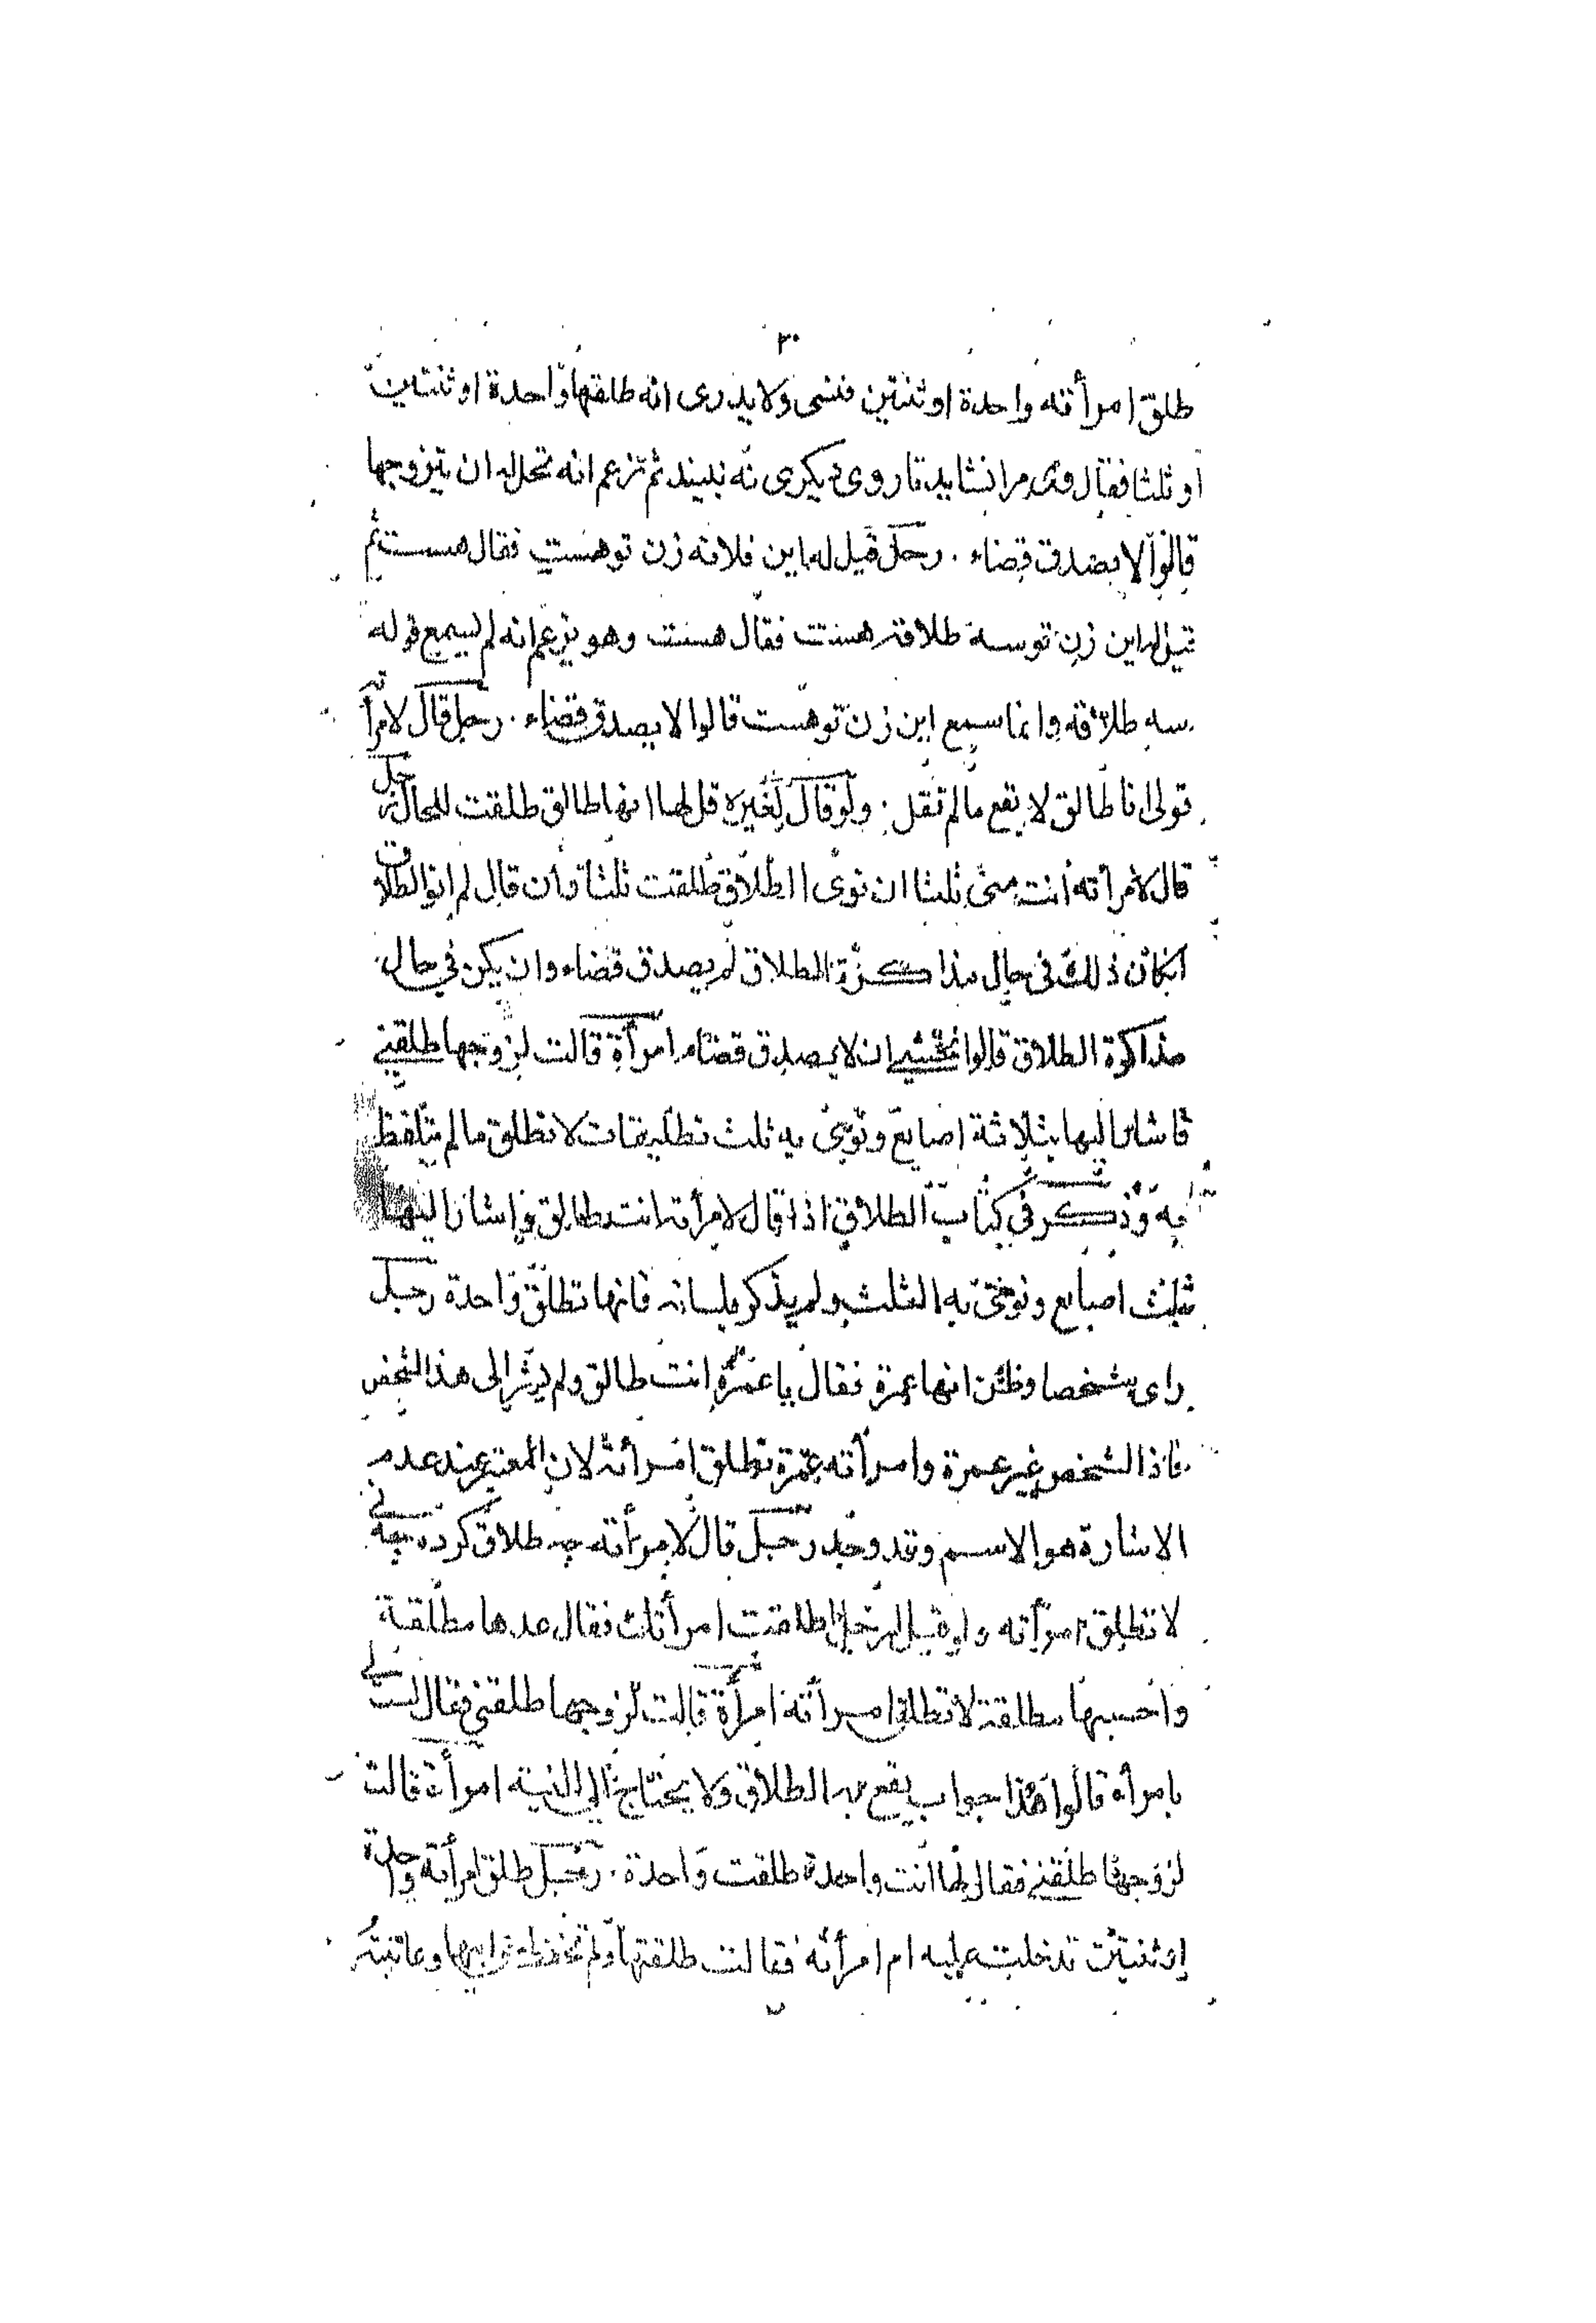 ٣٠
طلق امرأته واحدة او ثنتين فنسى ولا يدرى انه طلقها واحدة او ثنتين
او ثلثا فقال وى مرا نشايد تا روى ديكرى نه بيند ثم تزعم انه تحل له ان يتزوجها
قالوا لا يصدق قضاء . رجل قيل له اين فلانه زن تو هست فقال هست ثم
قيل له اين زن تو سه طلاقه هست فقال هست وهو يزعم انه لم يسمع قوله
سه طلاقه وانما سمع اين زن تو هست قالوا لا يصدق قضاء . رجل قال لامرأته
قولى انا طالق لا يقع مالم تقل . ولو قال لغيره قل لها انها طالق طلقت للحال رجل
قال لامرأته انت منى ثلثا ان نوى الطلاق طلقت ثلثا وان قال لم انو الطلاق
انكان ذلك فى حال مذاكرة الطلاق لم يصدق قضاء وان يكن في حال
مذاكرة الطلاق قالوا نخشى ان لا يصدق قضاء امرأة قالت لزوجها طلقني
فاشار اليها بثلاثة اصابع ونوى به ثلث تطليقات لا تطلق مالم يتلفظ
به وذكر في كتاب الطلاق اذا قال لامرأته انت طالق واشار اليها
بثلث اصابع ونوى به الثلث ولم يذكر بلسانه فانها تطلق واحدة رجل
راى شخصا وظن انها عمرة فقال يا عمرة انت طالق ولم يشر الى هذا الشخص
فاذا الشخص غير عمرة وامرأته عمرة تطلق امرأته لان المعتبر عند عدم
الاشارة هو الاسم وقد وجد رجل قال لامرأته چه طلاق كرده چه نى
لا تطلق امرأته ولو قيل لرجل اطلقت امرأتك فقال عدها مطلقة
واحسبها مطلقة لا تطلق امرأته امرأة قالت لزوجها طلقني فقال لست لي
بامرأة قالوا هذا جواب يقع به الطلاق ولا يحتاج الى النية امرأة قالت
لزوجها طلقني فقال لها انت واحدة طلقت واحدة . رجل طلق امرأته واحدة
او ثنتين تدخلت عليه ام امرأته فقالت طلقتها ولم تحفظ حق ابيها وعاتبته